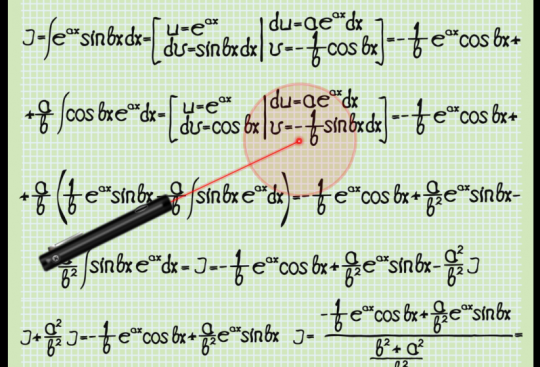 J=∫e^{ax}sin bxdx=[u=e^{ax} dv=sin bxdx | du=ae^{ax}dx v=-1/b cos bx]=-1/b e^{ax}cos bx+
+a/b ∫cos bx e^{ax}dx=[u=e^{ax} dv=cos bx | du=ae^{ax}dx v=-1/b sin bxdx]=-1/b e^{ax}cos bx+
+a/b (1/b e^{ax}sin bx-a/b ∫sin bx e^{ax}dx)=-1/b e^{ax}cos bx+a/b² e^{ax}sin bx-
/b² ∫sin bx e^{ax}dx=J=-1/b e^{ax}cos bx+a/b² e^{ax}sin bx-a²/b² J
J+a²/b² J=-1/b e^{ax}cos bx+a/b² e^{ax}sin bx J=(-1/b e^{ax}cos bx+a/b² e^{ax}sin bx)/((b²+a²)/b²)=